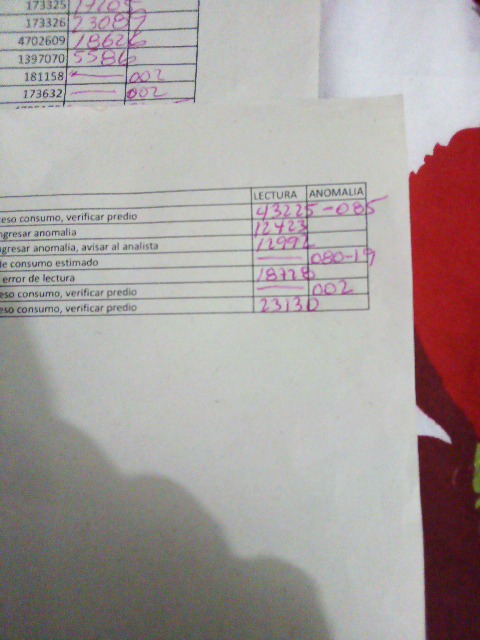 173325 17205
173326 23089
4702609 18626
1397070 5586
181158 — 002
173632 — 002
LECTURA ANOMALIA
eso consumo, verificar predio 43225 -085
ngresar anomalia 12423
ngresar anomalia, avisar al analista 12992
de consumo estimado — 080-19
error de lectura 18728
eso consumo, verificar predio — 002
eso consumo, verificar predio 23130